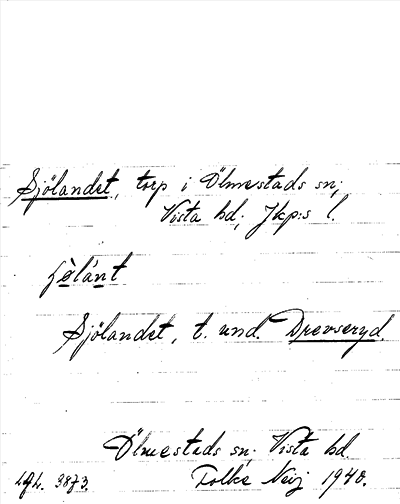 Sjölandet, torp i Ölmestads sn;
Vista hd; Jkp:s l.
Sjölandet, t. und. Drevseryd.
Ölmestads sn; Vista hd.
Lgh. 3873. Folke 1940.